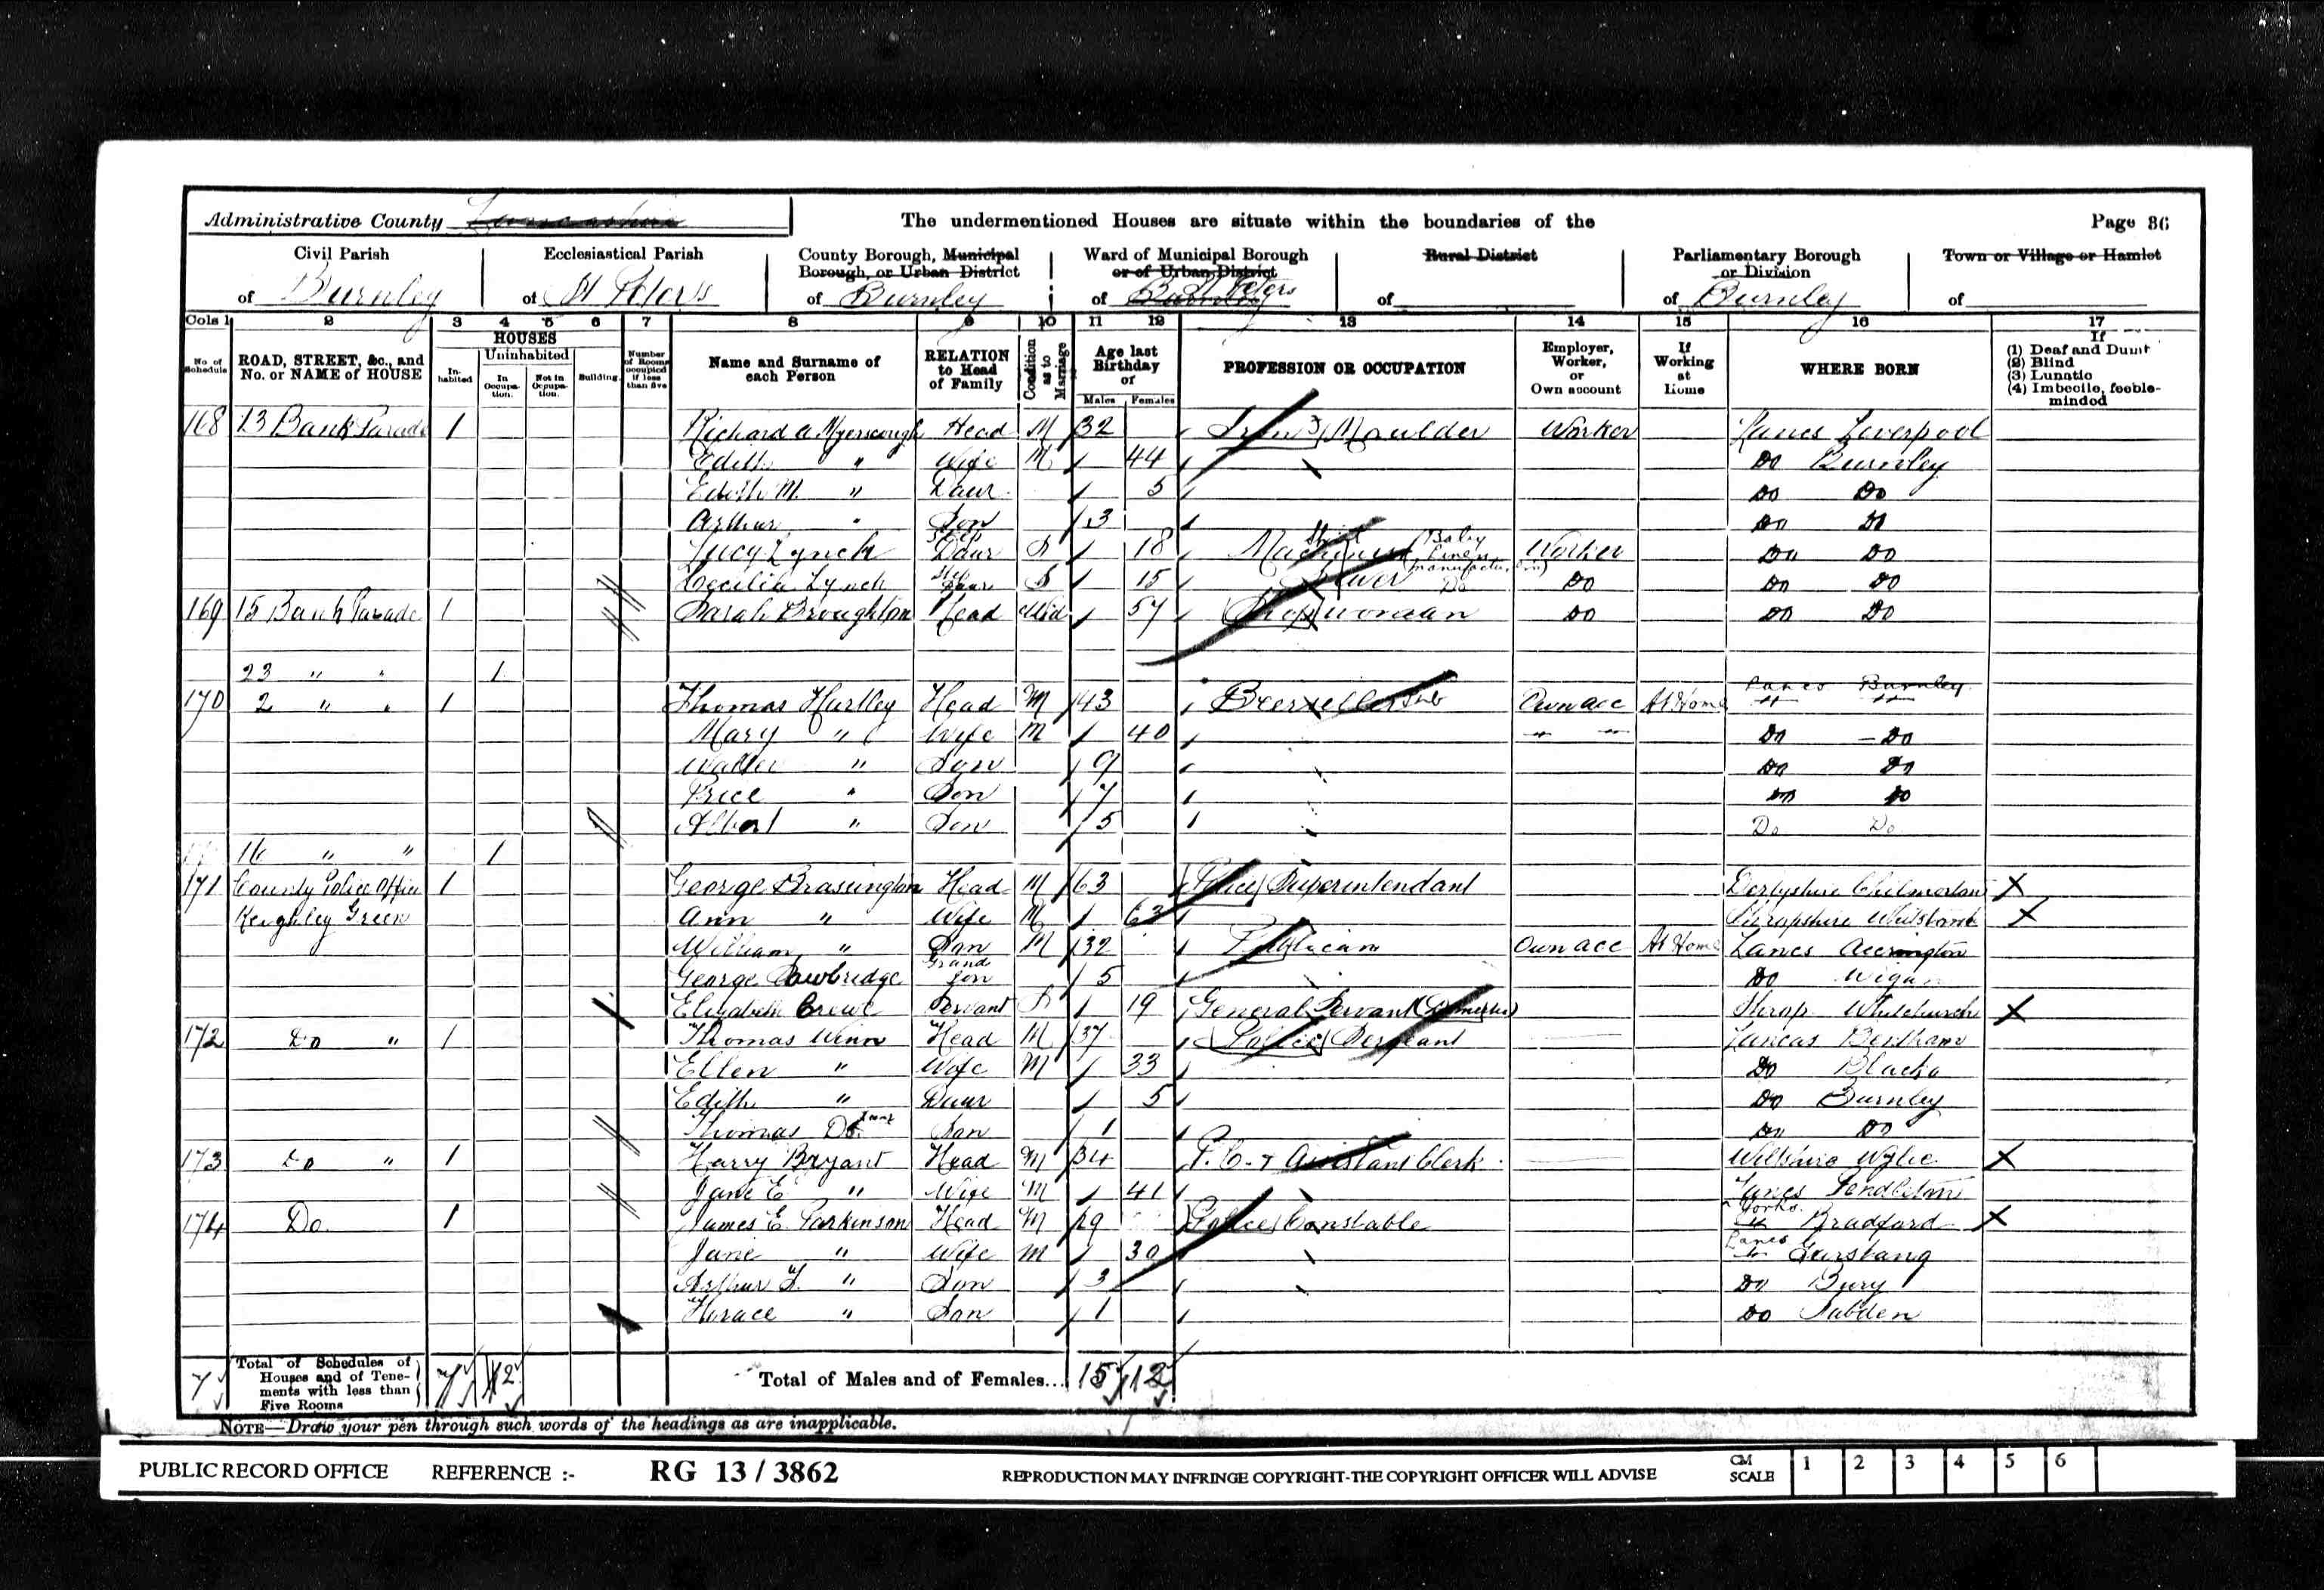 Administrative County Lancashire
The undermentioned Houses are situate within the boundaries of the
Page 36
Civil Parish
of Burnley
Ecclesiastical Parish
of St Peters
County Borough, Municipal
Borough, or Urban District
of Burnley
Ward of Municipal Borough
or of Urban District
of Burnley St Peters
Rural District
of
Parliamentary Borough
or Division
of Burnley
Town or Village or Hamlet
of
Cols 1 2 3 4 5 6 7 8 9 10 11 12 13 14 15 16 17
No. of Schedule
ROAD, STREET, &c., and No. or NAME of HOUSE
HOUSES
In-habited
Uninhabited
In Occupa-tion.
Not in Occupa-tion.
Building.
Number of Rooms occupied if less than five
Name and Surname of each Person
RELATION to Head of Family
Condition as to Marriage
Age last Birthday of
Males Females
PROFESSION OR OCCUPATION
Employer, Worker, or Own account
If Working at Home
WHERE BORN
If
(1) Deaf and Dumb
(2) Blind
(3) Lunatic
(4) Imbecile, feeble-minded
168 13 Bank Parade 1 Richard A Myerscough Head M 32 Iron Moulder Worker Lancs Liverpool
Edith " Wife M 44 Do Burnley
Edith M. " Daur 5 Do Do
Arthur " Son 3 Do Do
Lucy Lynch Step Daur S 18 Machinist Shirt (Baby Linen Manufactu Worker Do Do
Cecilia Lynch Step Daur S 15 Do Do Do Do
169 15 Bank Parade 1 Sarah Broughton Head Wid 57 Shopwoman Do Do Do
23 " " 1
170 2 " " 1 Thomas Hartley Head M 43 Beerseller Own acc At Home Lancs Burnley
Mary " Wife M 40 " " Do Do
Walter " Son 9 Do Do
Price " Son 7 Do Do
Albert " Son 5 Do Do
16 " " 1
171 County Police Office 1 George Brassington Head M 63 Police Superintendant Derbyshire Chelmorton X
Keighley Green Ann " Wife M 63 Shropshire X
William " Son M 32 Publican Own acc At Home Lancs Accrington
George Grand Son 5 Do Wigan
Elizabeth Crewe Servant S 19 General Servant (Domestic) Shrop Whitchurch X
172 Do " 1 Thomas Winn Head M 37 Police Sergeant Lancas Bentham
Ellen " Wife M 33 Do Blacko
Edith " Daur 5 Do Burnley
Thomas Do. Son 1 Do Do
173 Do " 1 Harry Bryant Head M 34 P.C. + Assistant Clerk Wiltshire Wylie X
Jane E " Wife M 41 Lancs Pendleton
174 Do. 1 James E. Parkinson Head M 29 Police Constable Yorks Bradford X
Jane " Wife M 30 Lancs Garstang
Arthur " Son 3 Do Bury
Horace " Son 1 Do Sabden
7 Total of Schedules of Houses and of Tene-ments with less than Five Rooms 7 2
Total of Males and of Females... 15 12
NOTE—Draw your pen through such words of the headings as are inapplicable.
PUBLIC RECORD OFFICE REFERENCE :- RG 13 / 3862 REPRODUCTION MAY INFRINGE COPYRIGHT-THE COPYRIGHT OFFICER WILL ADVISE CM SCALE 1 2 3 4 5 6